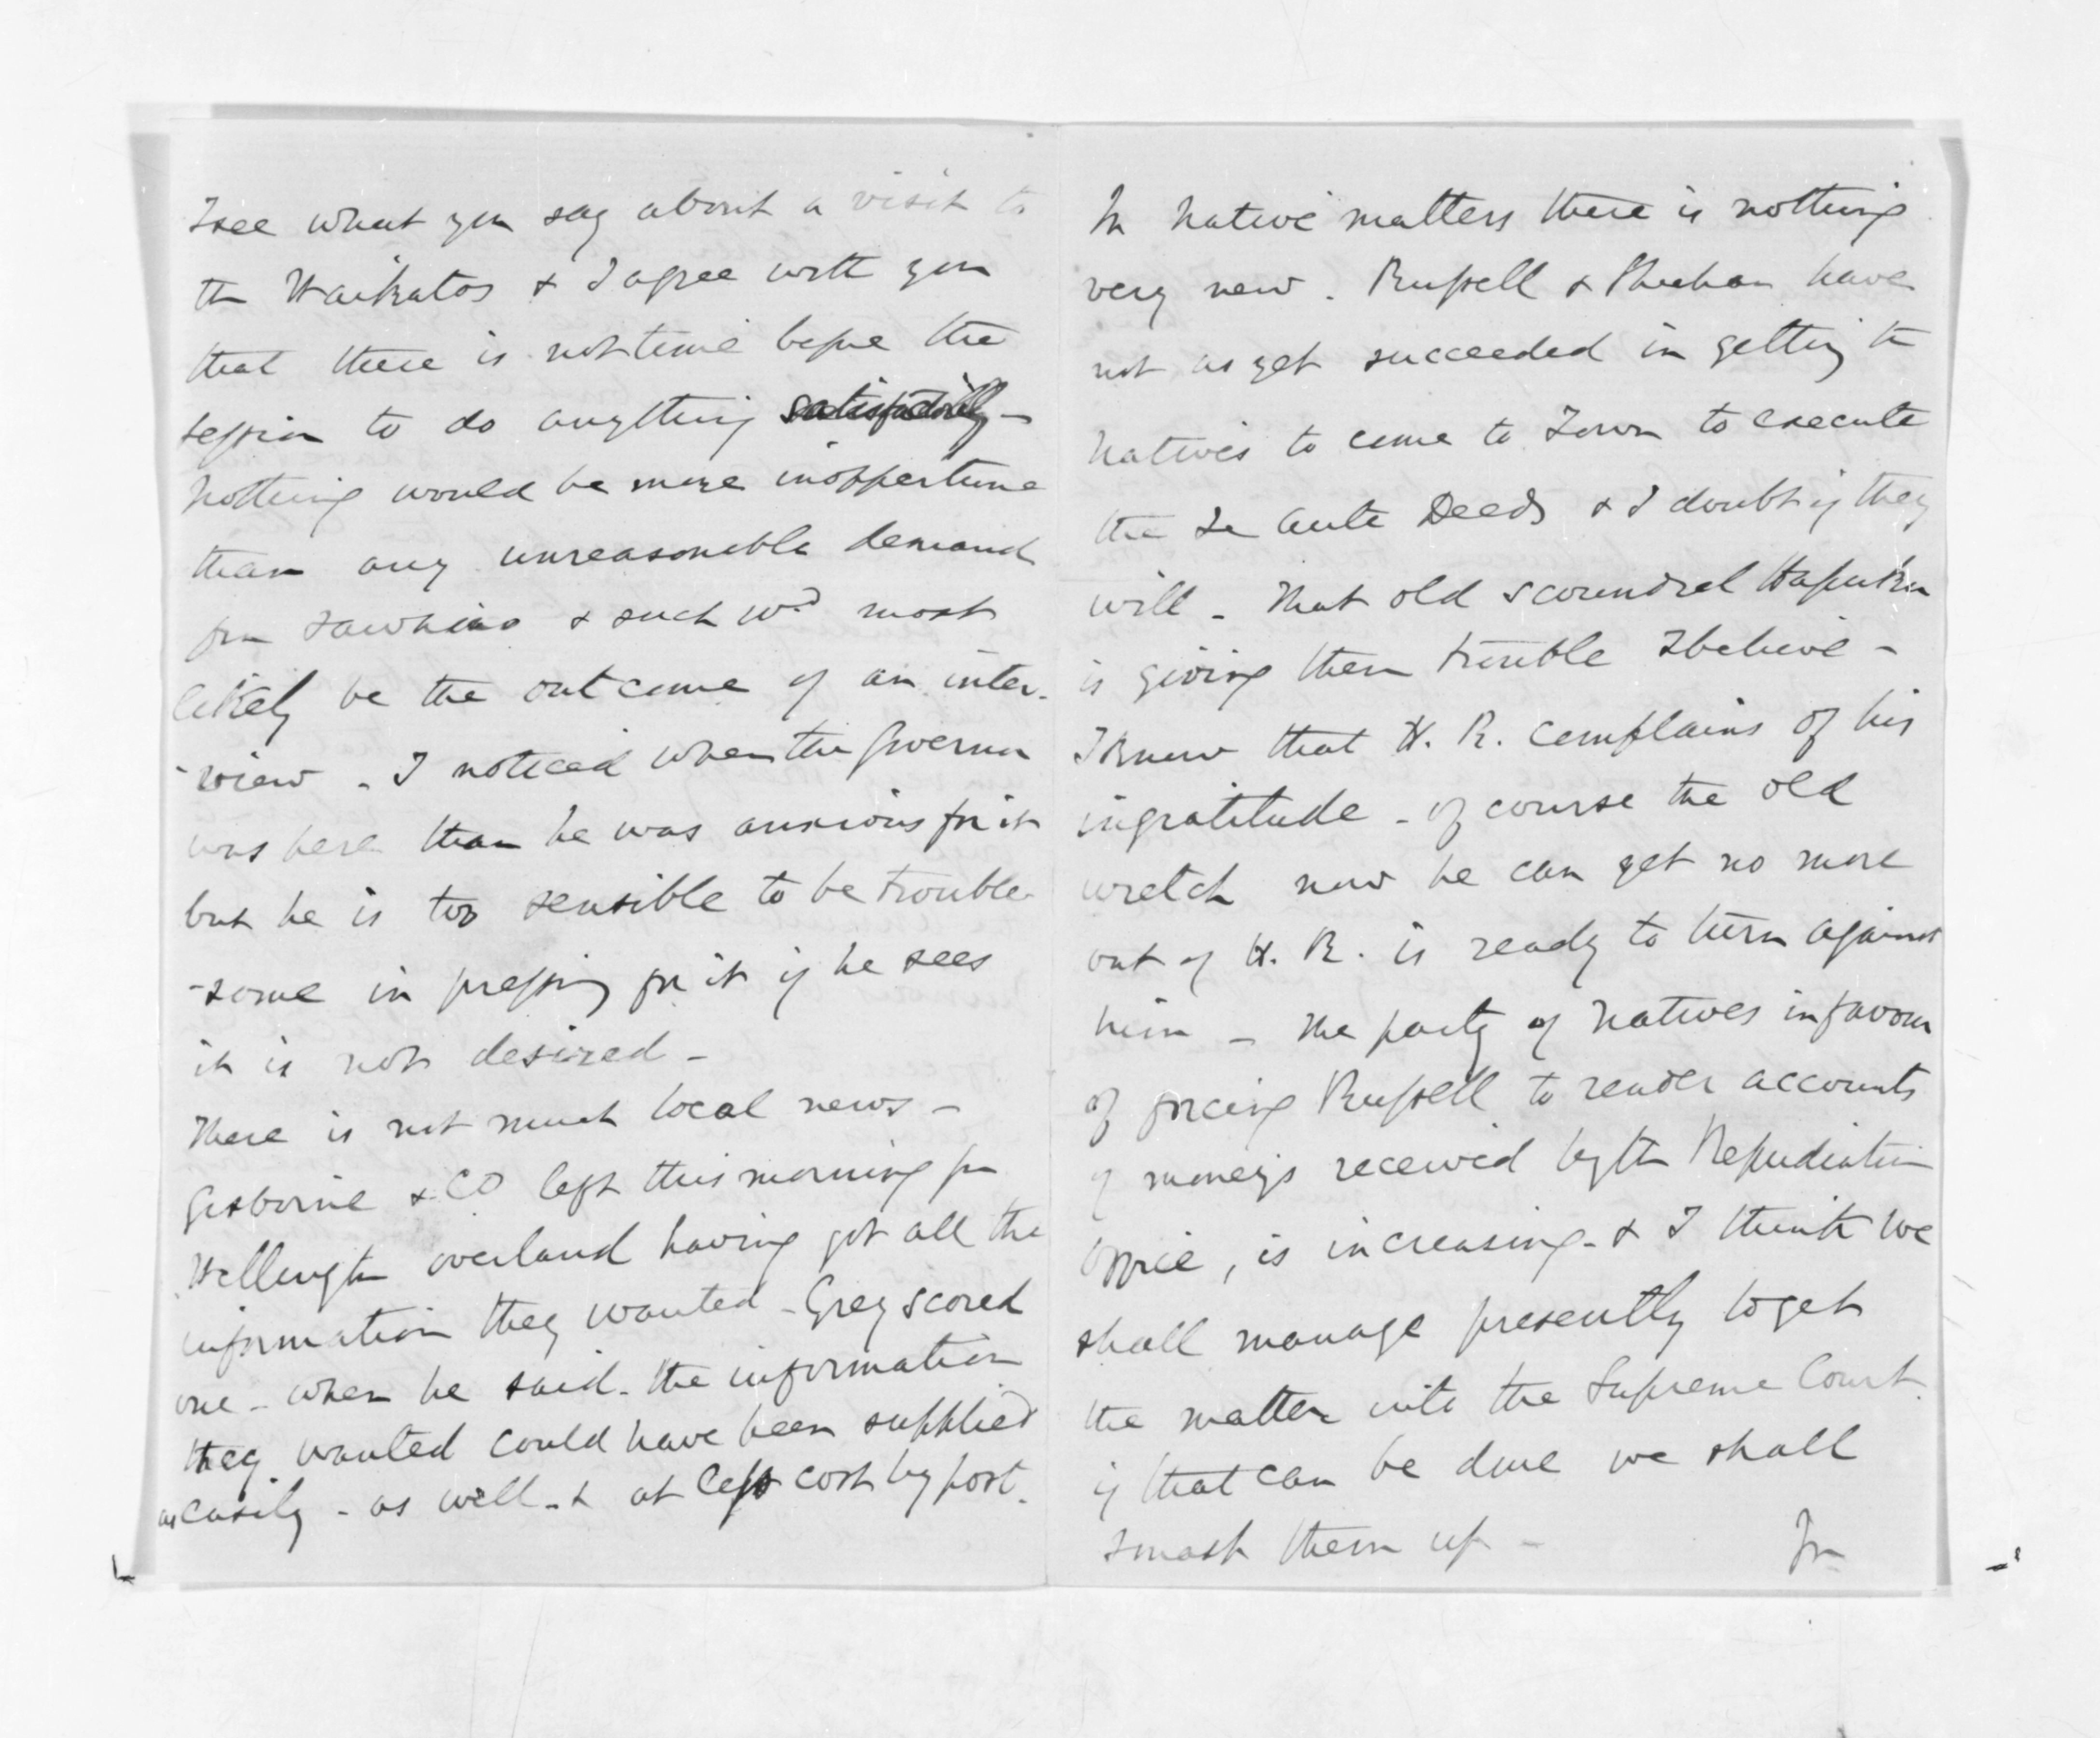 I see what you say about a visit to
the Waikatos & I agree with you
that there is not time before the
session to do anything satisfactorily -
Nothing would be more inopportune
than any unreasonable demand
from Tawhiao & such wd most
likely be the outcome of an inter-
-view - I noticed when the Governor
was here than he was anxious for it
but he is too sensible to be trouble-
-some in pressing for it if he sees
it is not desired -
There is not much local news -
Gisborne & Co left this morning for
Wellington overland having got all the
information they wanted - Grey scored
one - when he said - the information
they wanted could have been supplied
as easily - as well - & at less cost by post.
In Native matters there is nothing
very new. Russell & Sheehan have
not as yet succeeded in getting the
Natives to come to Town to execute
the Te Aute Deeds & I doubt if they
will - That old scoundrel Hapuku
is giving them trouble I believe -
I know that H. R. complains of his
ingratitude - of course the old
wretch now he can get no more
out of H. R. is ready to turn against
him - The party of Natives in favour
of forcing Russell to render accounts
of moneys received by the Repudiation
Office, is increasing - & I think we
shall manage presently to get
the matter into the Supreme Court.
if that can be done we shall
smash them up -
In